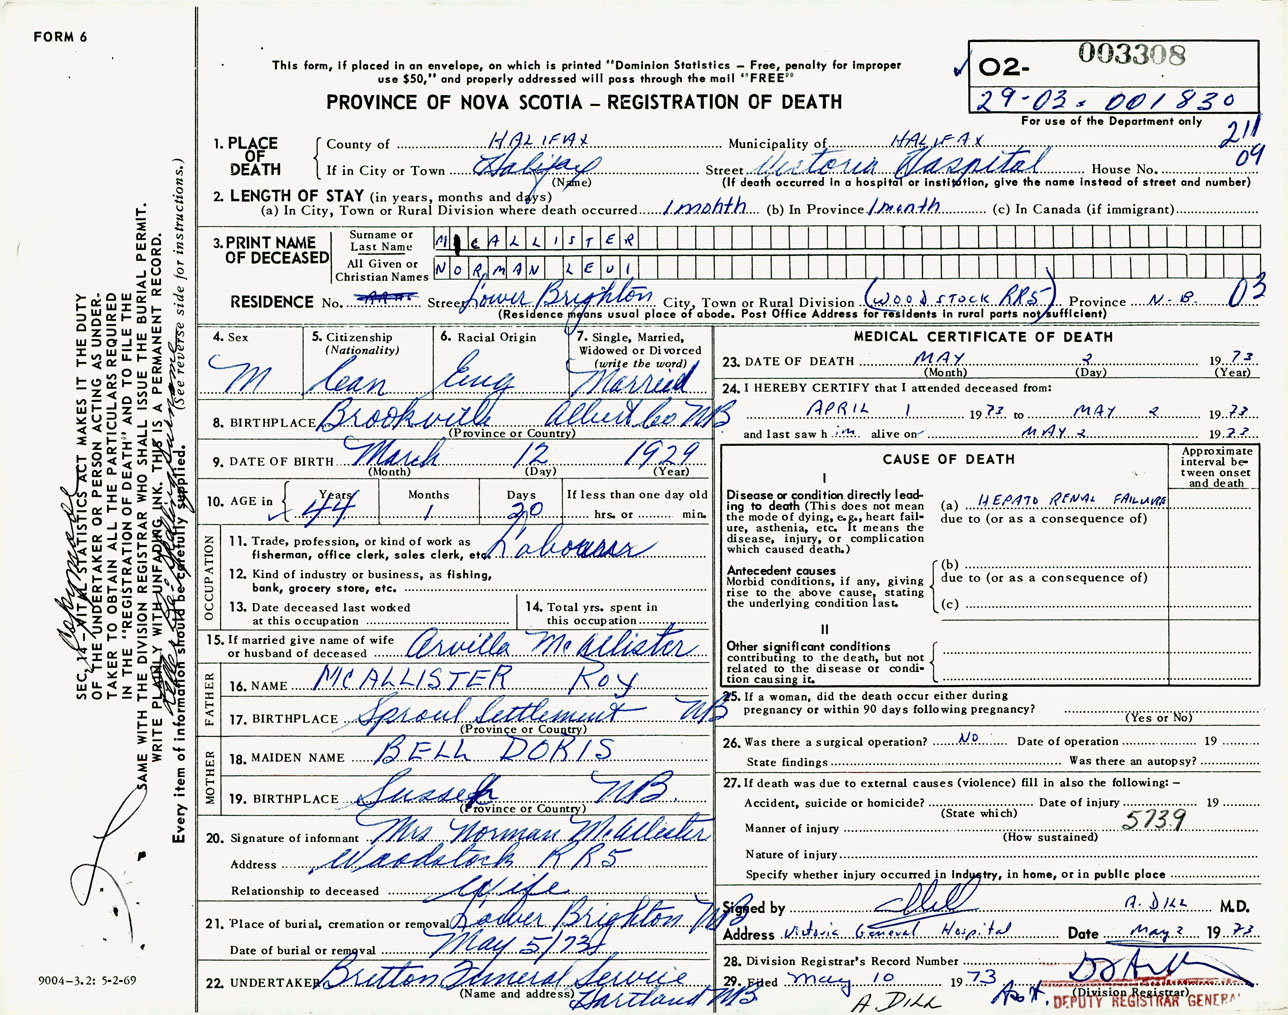 FORM 6
This form, if placed in an envelope, on which is printed "Dominion Statistics — Free, penalty for improper
use $50," and properly addressed will pass through the mail "FREE"
PROVINCE OF NOVA SCOTIA — REGISTRATION OF DEATH
O2- 003308
29-03-001830
For use of the Department only
211
09
1. PLACE OF DEATH
County of HALIFAX Municipality of HALIFAX
If in City or Town Halifax Street Victoria Hospital House No.
(Name) (If death occurred in a hospital or institution, give the name instead of street and number)
2. LENGTH OF STAY (in years, months and days)
(a) In City, Town or Rural Division where death occurred 1 month (b) In Province 1 month (c) In Canada (if immigrant)
3. PRINT NAME OF DECEASED
Surname or Last Name McALLISTER
All Given or Christian Names NORMAN LEVI
RESIDENCE No. Street Lower Brighton City, Town or Rural Division (WOODSTOCK RR5) Province N.B. 03
(Residence means usual place of abode. Post Office Address for residents in rural parts not sufficient)
4. Sex M
5. Citizenship (Nationality) Can
6. Racial Origin Eng
7. Single, Married, Widowed or Divorced (write the word) Married
8. BIRTHPLACE Brookville Albert Co NB
(Province or Country)
9. DATE OF BIRTH March 12 1929
(Month) (Day) (Year)
10. AGE in Years Months Days If less than one day old
44 1 20 hrs. or min.
OCCUPATION
11. Trade, profession, or kind of work as fisherman, office clerk, sales clerk, etc. Labourer
12. Kind of industry or business, as fishing, bank, grocery store, etc.
13. Date deceased last worked at this occupation
14. Total yrs. spent in this occupation
15. If married give name of wife or husband of deceased Arvilla McAllister
FATHER
16. NAME MCALLISTER ROY
17. BIRTHPLACE Sproul Settlement NB
(Province or Country)
MOTHER
18. MAIDEN NAME BELL DORIS
19. BIRTHPLACE Sussex NB.
(Province or Country)
20. Signature of informant Mrs Norman McAllister
Address Woodstock RR5
Relationship to deceased Wife
21. Place of burial, cremation or removal Lower Brighton NB
Date of burial or removal May 5/73
22. UNDERTAKER Britton Funeral Service
(Name and address) Hartland NB
MEDICAL CERTIFICATE OF DEATH
23. DATE OF DEATH MAY 2 1973
(Month) (Day) (Year)
24. I HEREBY CERTIFY that I attended deceased from:
APRIL 1 1973 to MAY 2 1973
and last saw h im alive on MAY 2 1973
CAUSE OF DEATH
Approximate interval between onset and death
I
Disease or condition directly leading to death (This does not mean the mode of dying, e.g., heart failure, asthenia, etc. It means the disease, injury, or complication which caused death.)
(a) HEPATO RENAL FAILURE
due to (or as a consequence of)
Antecedent causes
Morbid conditions, if any, giving rise to the above cause, stating the underlying condition last.
(b)
due to (or as a consequence of)
(c)
II
Other significant conditions
contributing to the death, but not related to the disease or condition causing it.
25. If a woman, did the death occur either during pregnancy or within 90 days following pregnancy?
(Yes or No)
26. Was there a surgical operation? NO Date of operation 19
State findings Was there an autopsy?
27. If death was due to external causes (violence) fill in also the following: —
Accident, suicide or homicide? Date of injury 19
(State which)
Manner of injury 5739
(How sustained)
Nature of injury
Specify whether injury occurred in Industry, in home, or in public place
Signed by A. DILL M.D.
Address Victoria General Hospital Date May 2 1973
28. Division Registrar's Record Number
29. Filed May 10 1973
(Division Registrar)
A. DILL
Asst. DEPUTY REGISTRAR GENERAL
SEC. 14 VITAL STATISTICS ACT MAKES IT THE DUTY
OF THE UNDERTAKER OR PERSON ACTING AS UNDER-
TAKER TO OBTAIN ALL THE PARTICULARS REQUIRED
IN THE "REGISTRATION OF DEATH" AND TO FILE THE
SAME WITH THE DIVISION REGISTRAR WHO SHALL ISSUE THE BURIAL PERMIT.
WRITE PLAINLY WITH UNFADING INK. THIS IS A PERMANENT RECORD.
Every item of information should be carefully supplied. (See reverse side for instructions.)
9004-3.2: 5-2-69